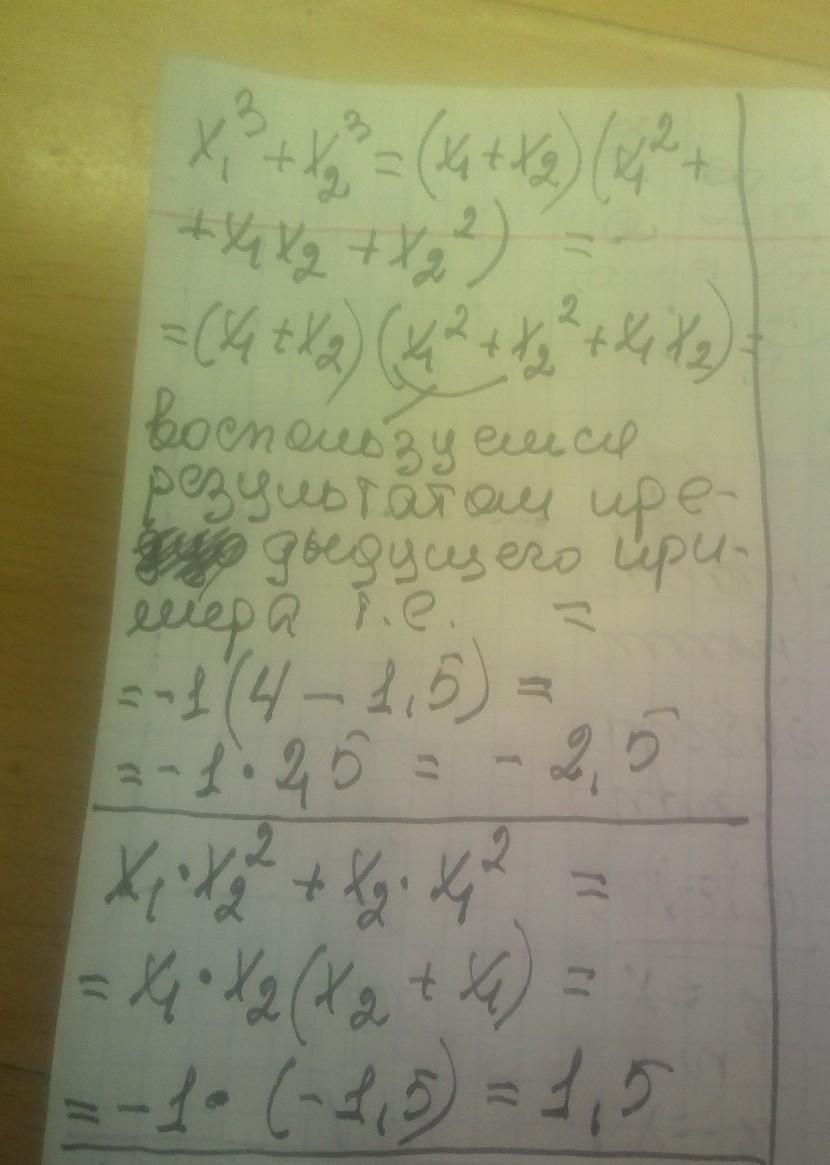 x₁³ + x₂³ = (x₁ + x₂)(x₁² +
+ x₁x₂ + x₂²) =
= (x₁ + x₂)(x₁² + x₂² + x₁x₂) =
воспользуемся
результатом пре-
дыдущего при-
мера т.е. =
= -1(4 - 1,5) =
= -1 · 2,5 = - 2,5
x₁ · x₂² + x₂ · x₁² =
= x₁ · x₂(x₂ + x₁) =
= -1 · (-1,5) = 1,5